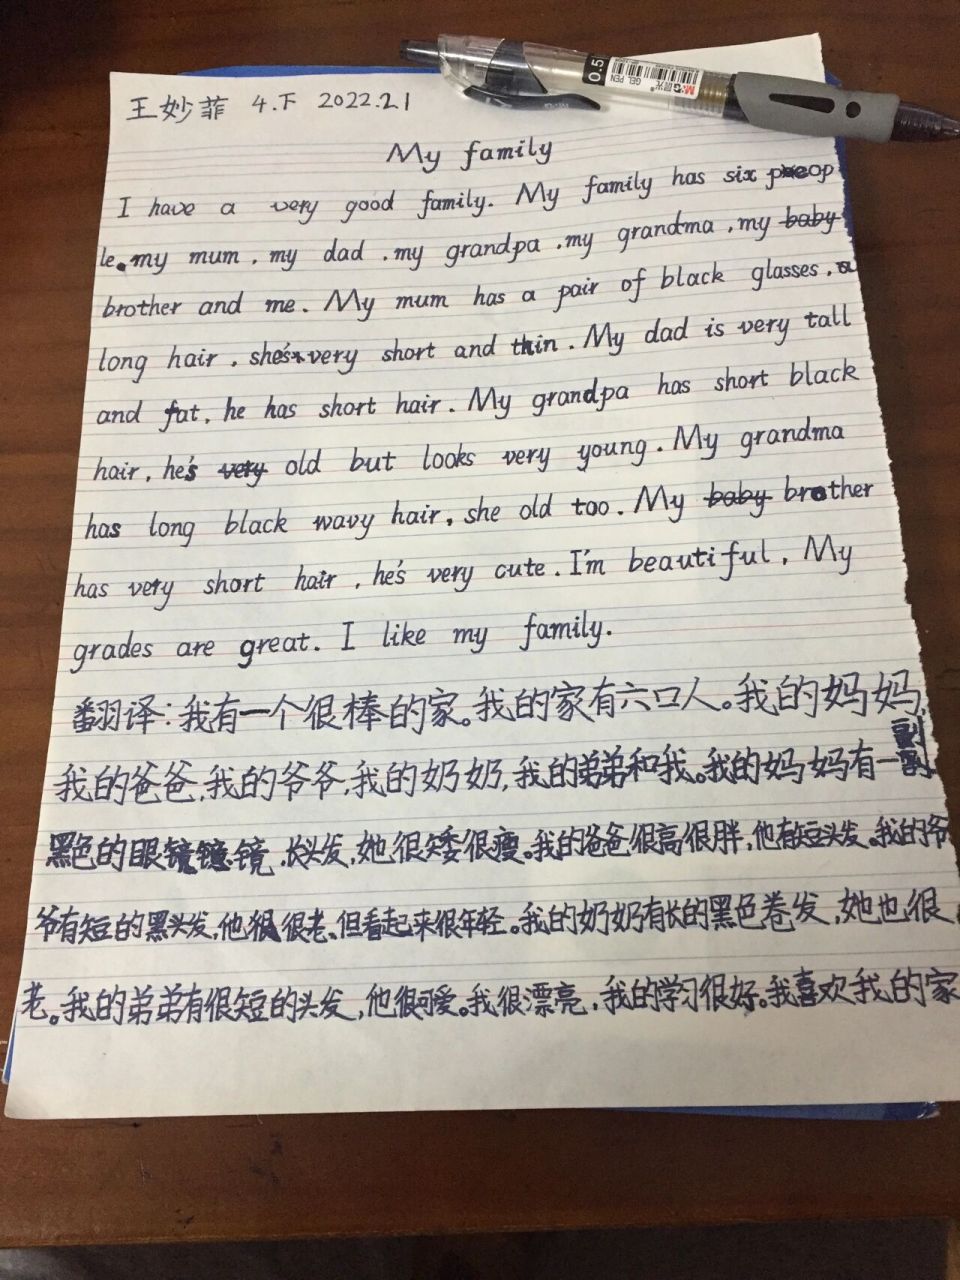 王妙菲 4.下 2022.2.1
0.5 GEL PEN M&G 晨光
My family
I have a very good family. My family has six peop
le. my mum, my dad, my grandpa, my grandma, my baby
brother and me. My mum has a pair of black glasses, a
long hair, she's very short and thin. My dad is very tall
and fat, he has short hair. My grandpa has short black
hair, he's very old but looks very young. My grandma
has long black wavy hair, she old too. My baby brother
has very short hair, he's very cute. I'm beautiful, My
grades are great. I like my family.
翻译:我有一个很棒的家。我的家有六口人。我的妈妈,
我的爸爸,我的爷爷,我的奶奶,我的弟弟和我。我的妈妈有一副
黑色的眼镜,长头发,她很矮很瘦。我的爸爸很高很胖,他有短头发。我的爷
爷有短的黑头发,他很老、但看起来很年轻。我的奶奶有长的黑色卷发,她也很
老。我的弟弟有很短的头发,他很可爱。我很漂亮,我的学习很好。我喜欢我的家